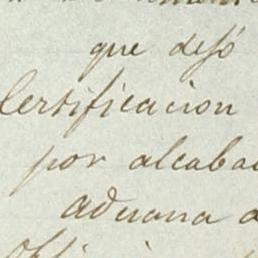 que dejó
Certificacion
por alcaba
aduana a